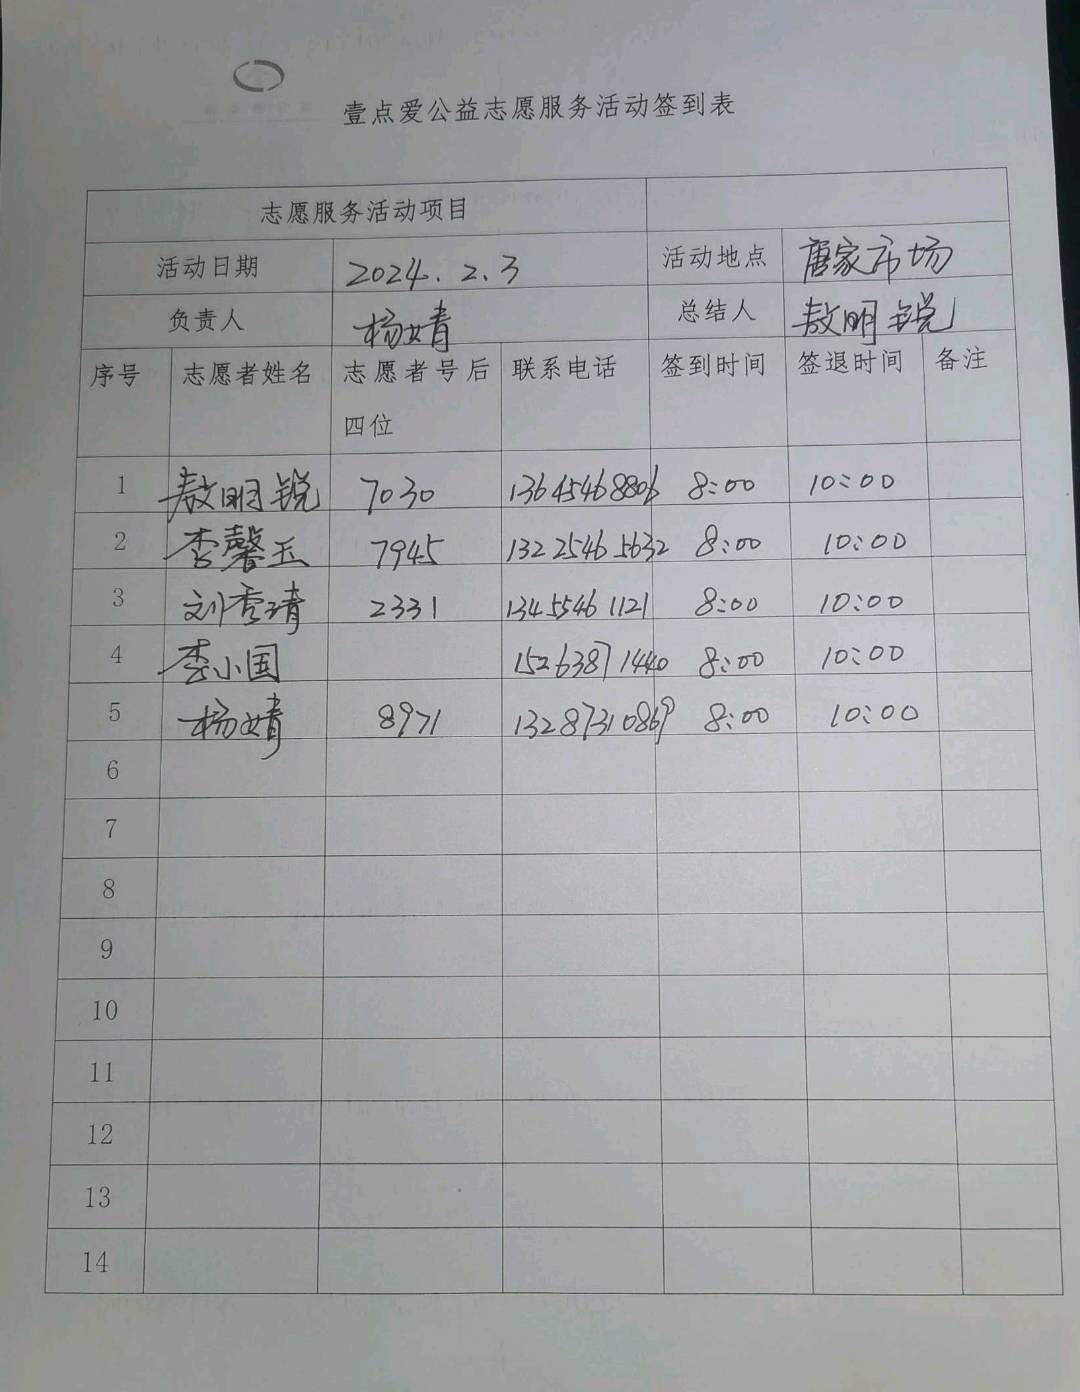 壹点爱公益志愿服务活动签到表
志愿服务活动项目
活动日期 2024.2.3 活动地点 唐家市场
负责人 杨婧 总结人 敖明锐
序号 志愿者姓名 志愿者号后四位 联系电话 签到时间 签退时间 备注
1 敖明锐 7030 13645468806 8:00 10:00
2 李馨玉 7945 13225465632 8:00 10:00
3 刘雪靖 2331 13455461121 8:00 10:00
4 李小国 15263871440 8:00 10:00
5 杨婧 8971 13287310869 8:00 10:00
6
7
8
9
10
11
12
13
14